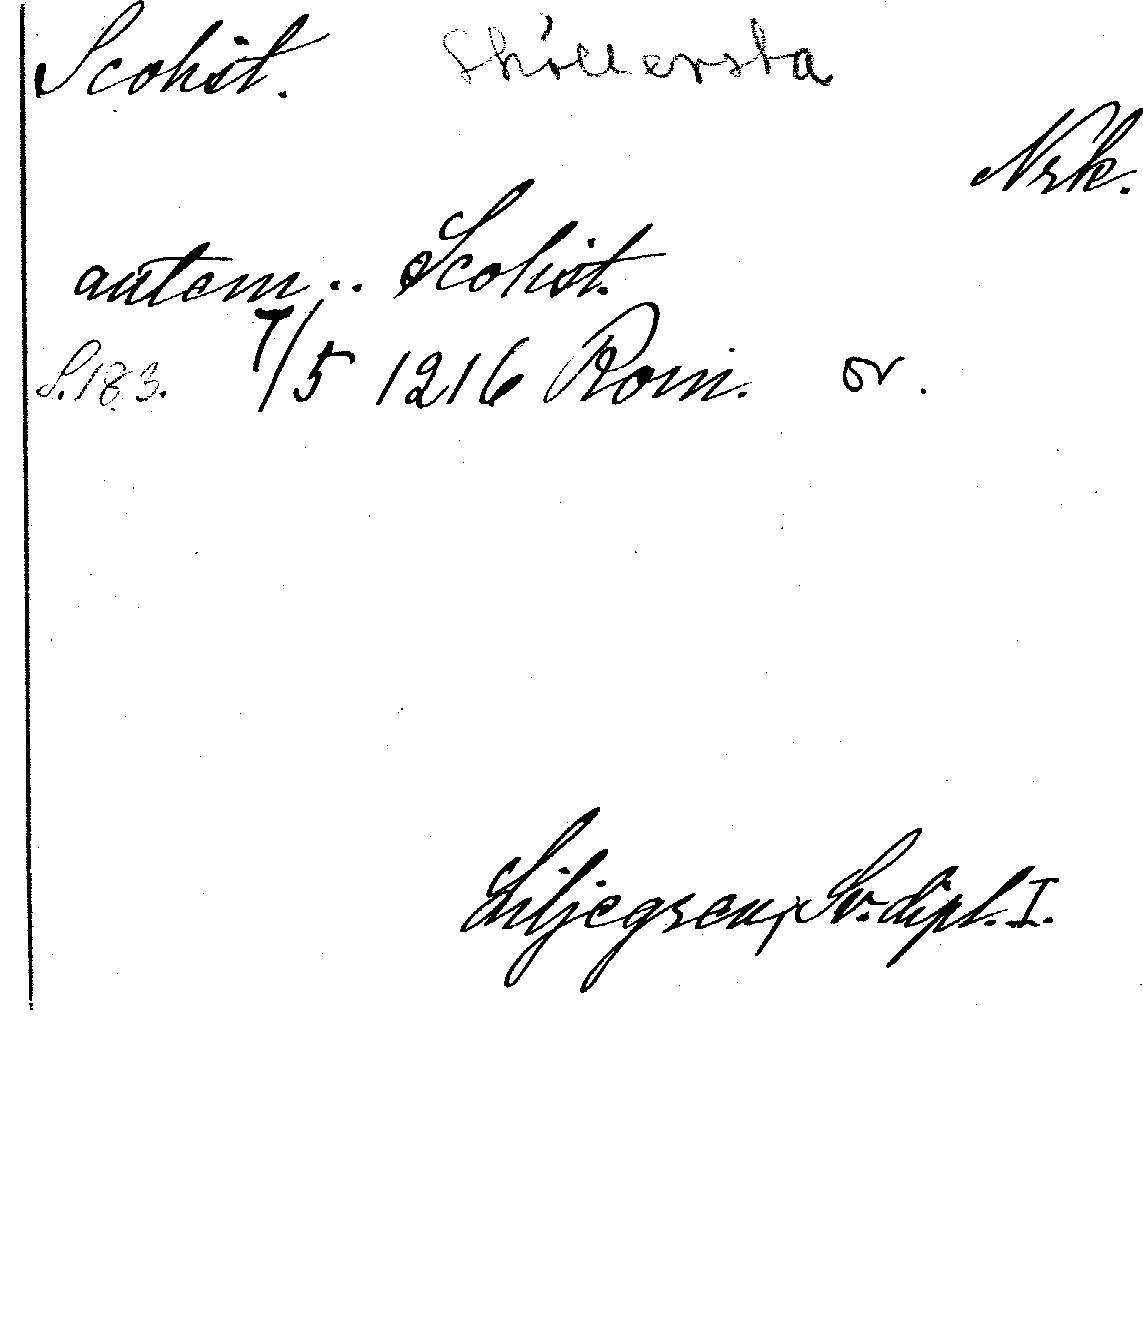 Scohist. Sköllersta
Nrk.
autem .. Scohist.
S. 183. 7/5 1216 Rom. or.
Liljegren, Sv. dipl. I.